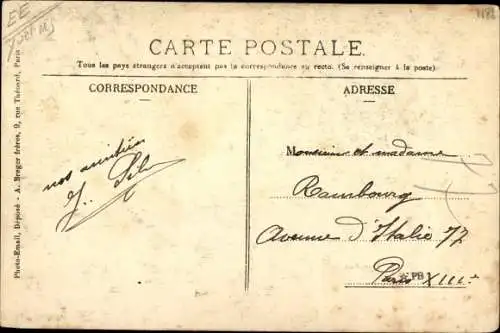 EE
CARTE POSTALE
Tous les pays étrangers n'acceptent pas la correspondance au recto. (Se renseigner à la poste).
CORRESPONDANCE
nos amitiés
J.
ADRESSE
Monsieur et madame
Rambourg
Avenue d'Italie 77
Paris XIII
PB
Photo-Email, Déposé - A. Breger frères, 9, rue Thénard, Paris